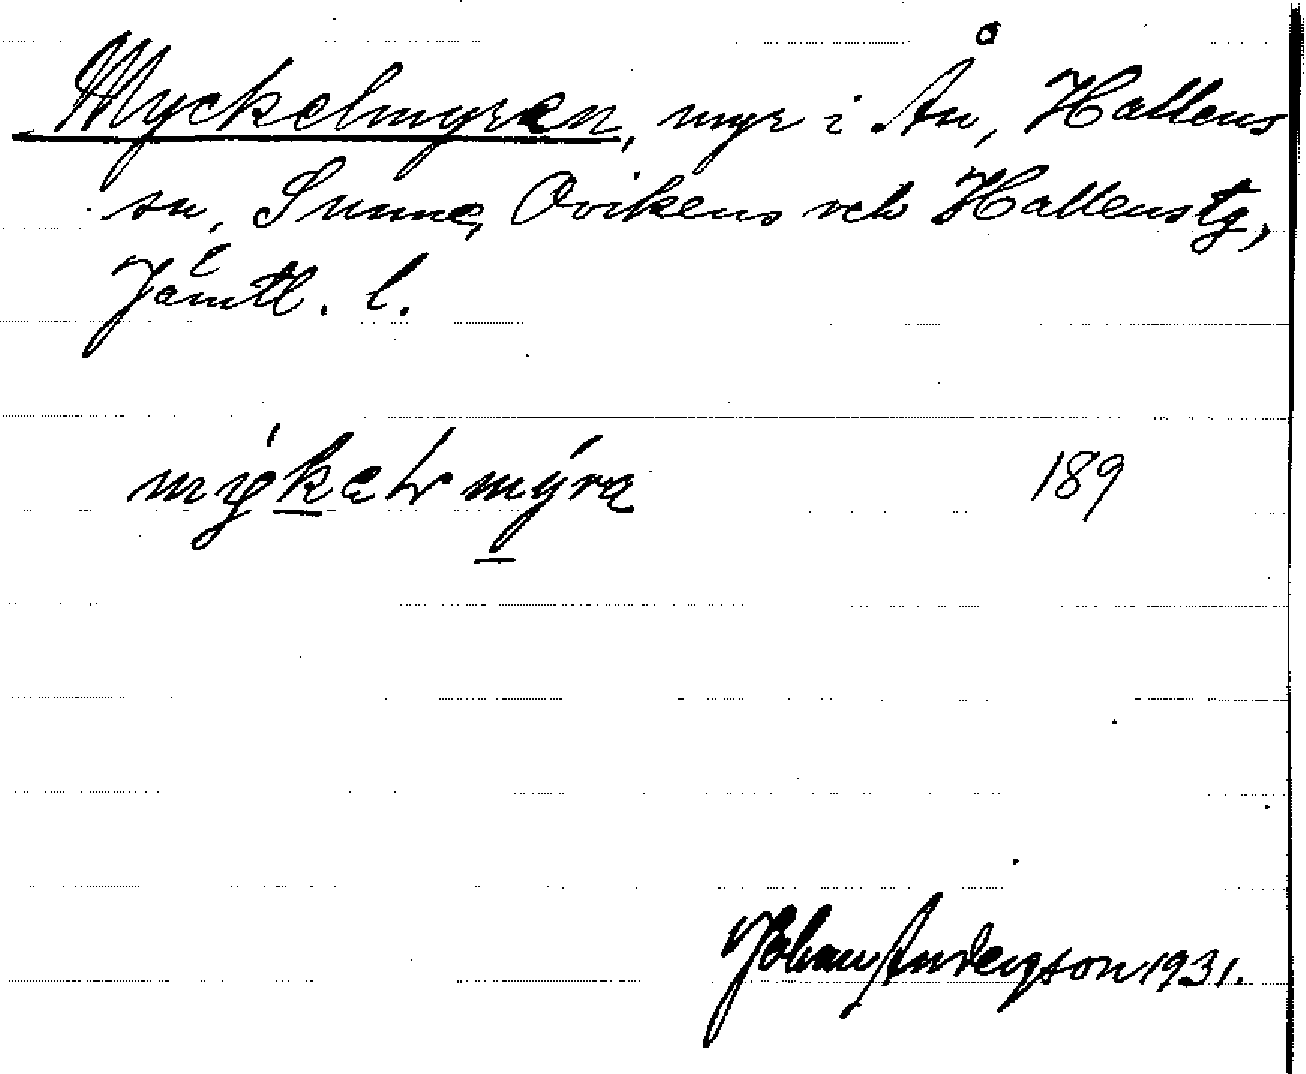 Myckelmyren, myr i Ån, Hallens
sn, Sunne, Ovikens och Hallens tg,
Jämtl. l.
189
Johan Anderson 1931.